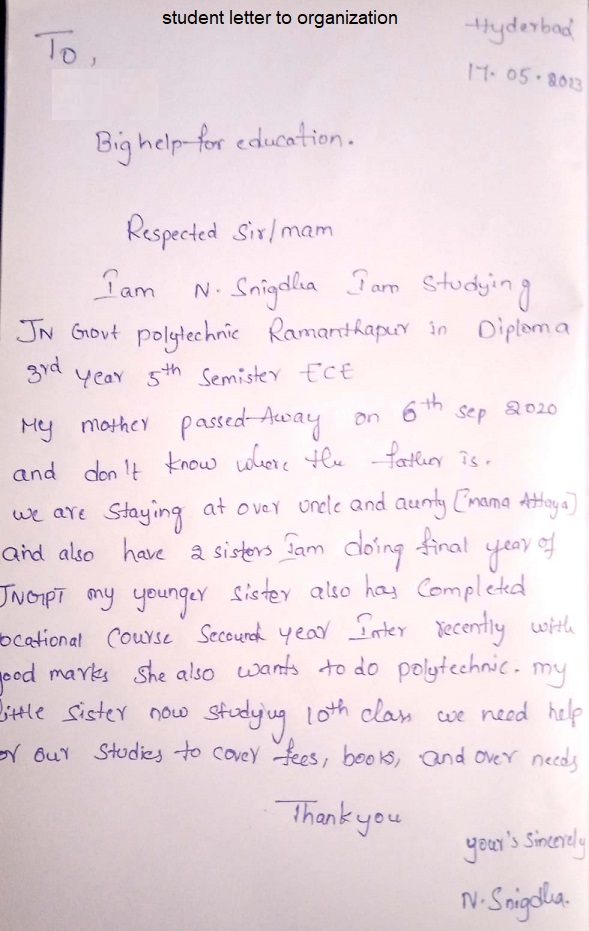 student letter to organization
Hyderbad
To,
17.05.2023
Big help for education.
Respected Sir/mam
Iam N. Snigdha Iam Studying
JN Govt polytechnic Ramanthapur in Diploma
3rd year 5th Semister ECE
My mother passed Away on 6th sep 2020
and don't know where the father is.
we are Staying at over uncle and aunty [mama Attaya]
and also have 2 sisters Iam doing final year of
JNGPT my younger sister also has Completed
ocational Course Secound year Inter recently with
ood marks She also wants to do polytechnic. my
ittle Sister now studying 10th class we need help
or our Studies to cover fees, books, and over needs
Thank you
your's Sincerely
N. Snigdha.